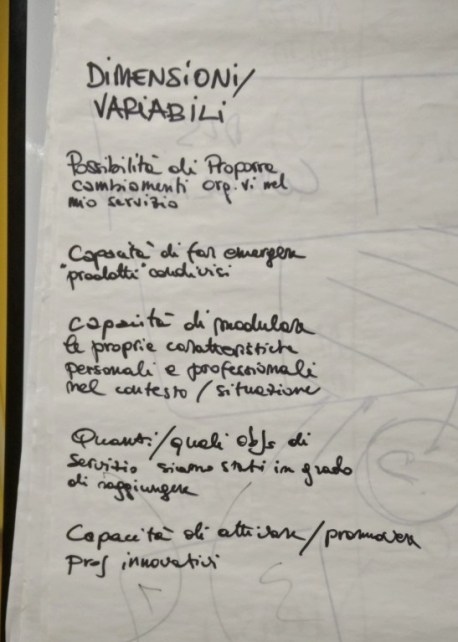 DIMENSIONI/
VARIABILI
Possibilità di Proporre
cambiamenti org.vi nel
mio servizio
Capacità di far emergere
"prodotti" condivisi
Capacità di modulare
le proprie caratteristiche
personali e professionali
nel contesto / situazione
Quanti/quali obbs di
servizio siamo stati in grado
di raggiungere
Capacità di attivare/promuovere
prog innovativi